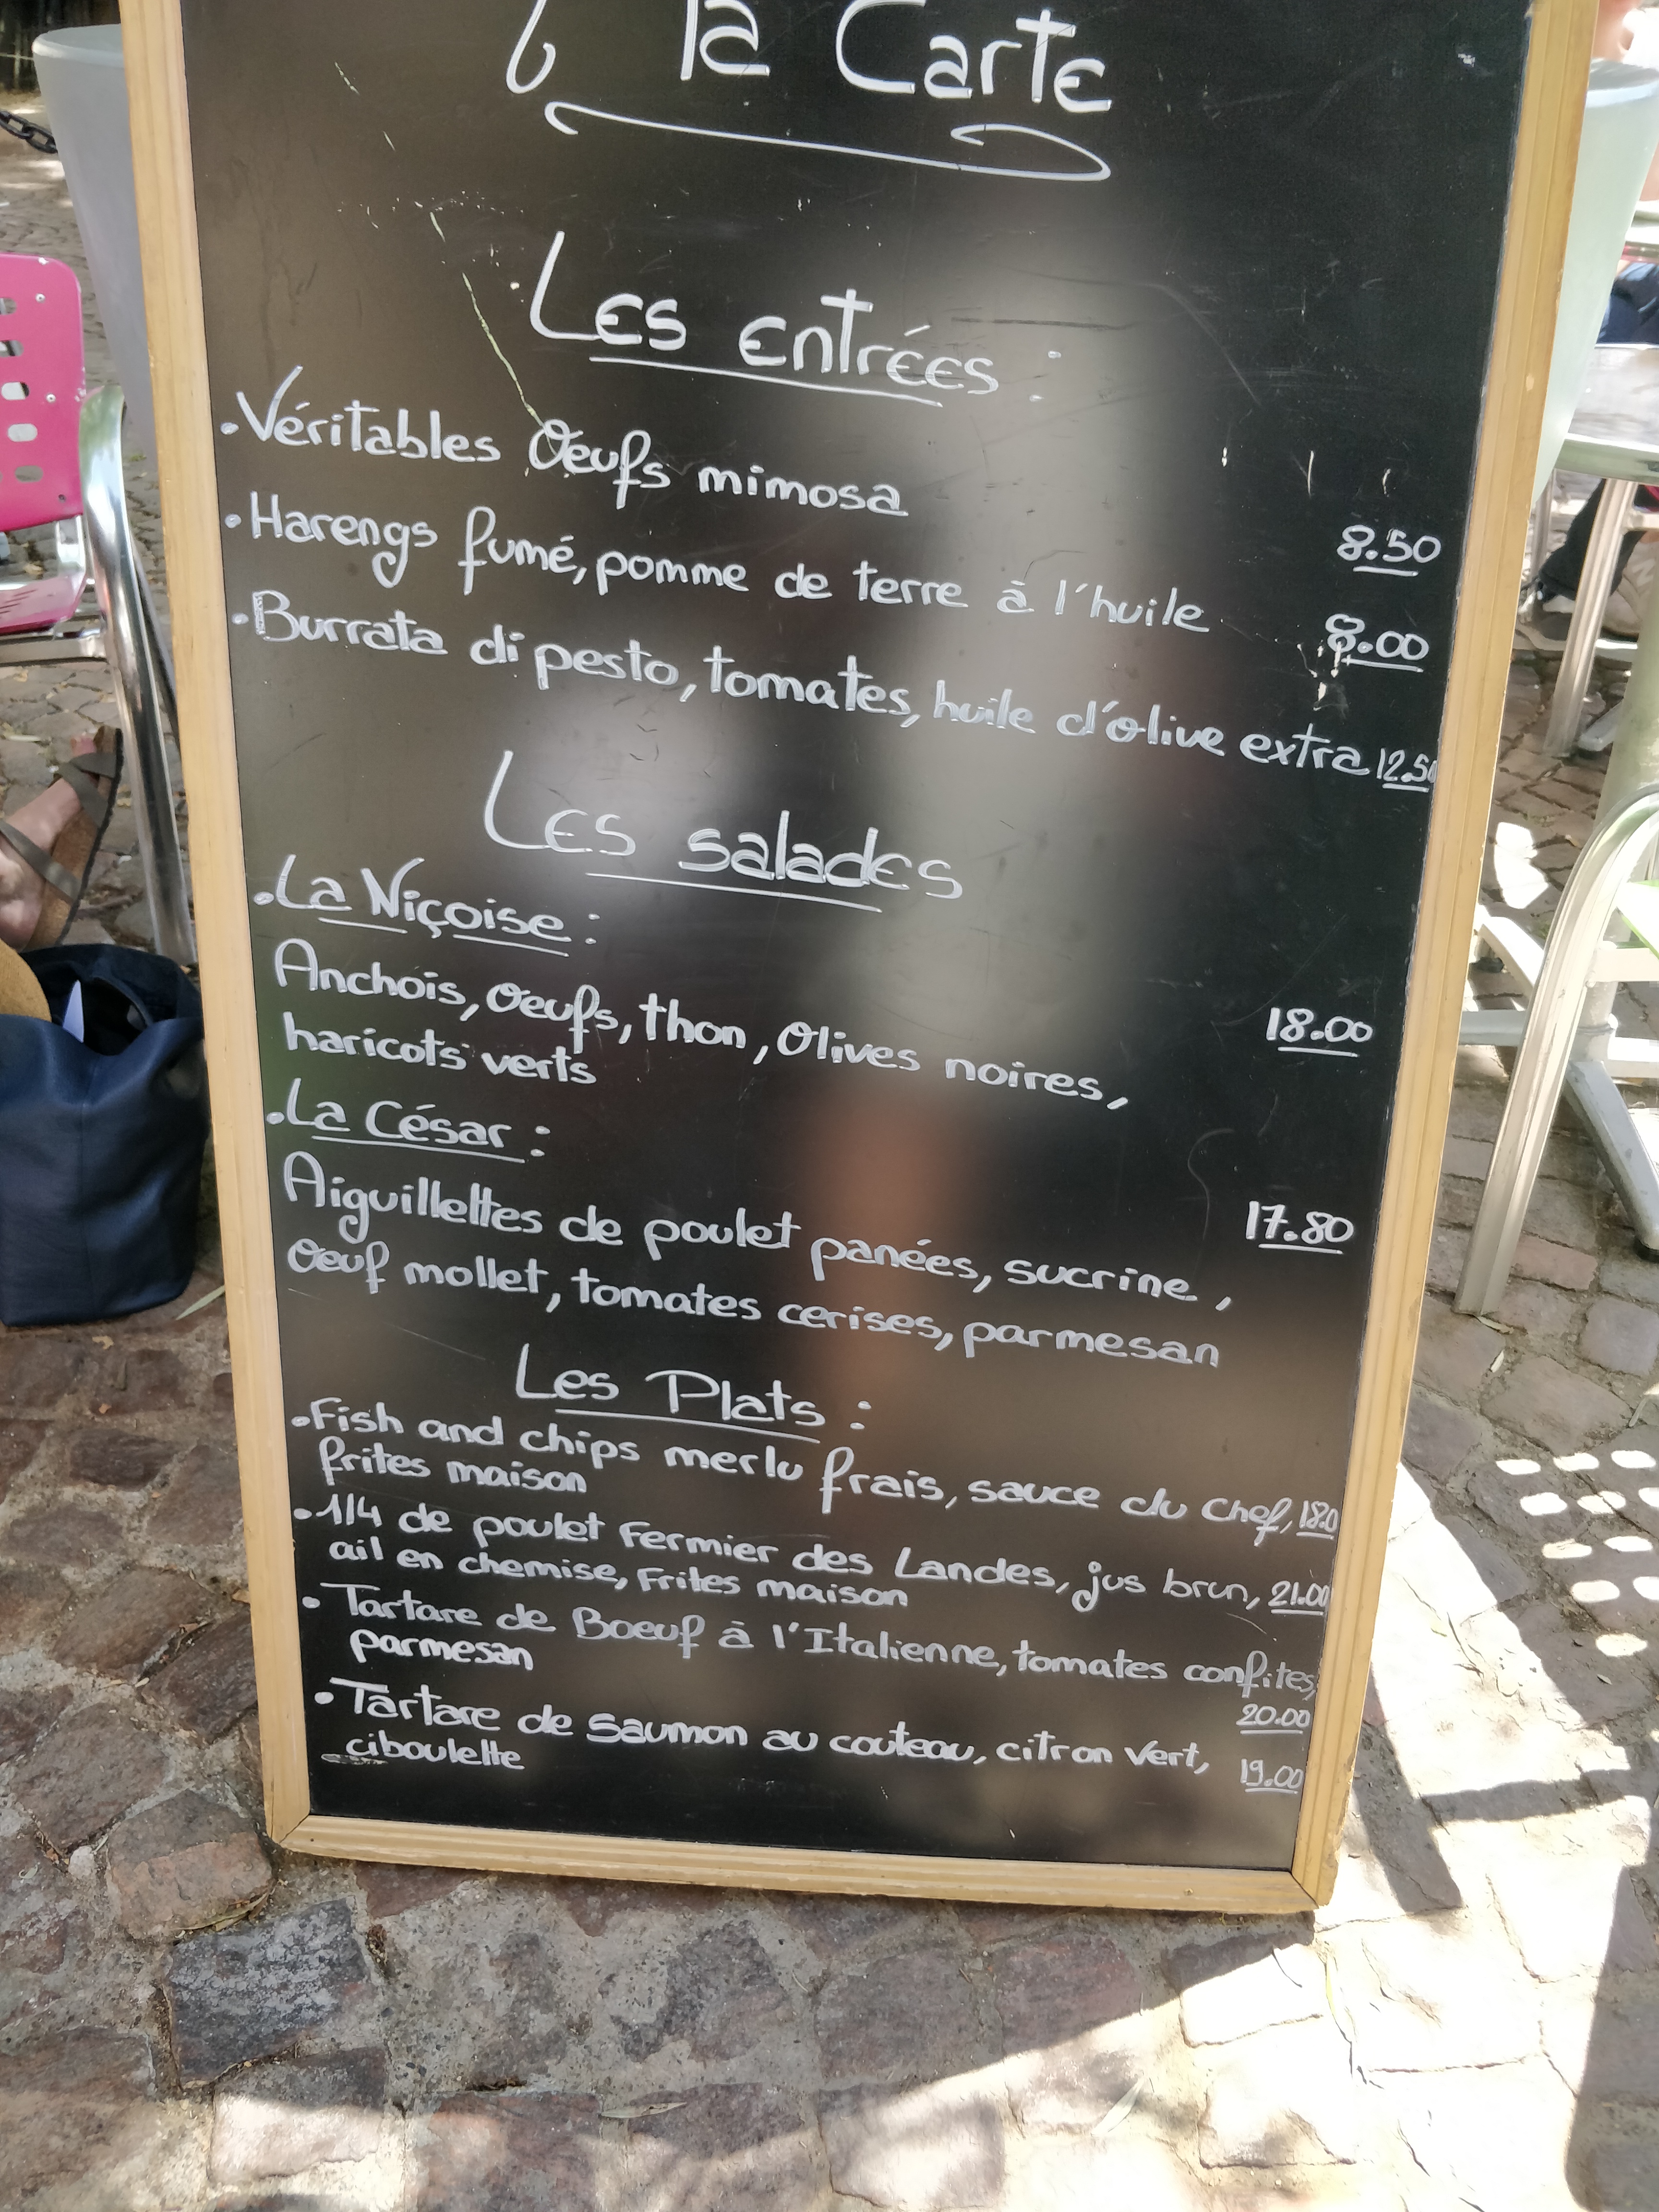 la Carte
Les entrées :
• Véritables Oeufs mimosa 8.50
• Harengs fumé, pomme de terre à l'huile 8.00
• Burrata di pesto, tomates, huile d'olive extra 12.50
Les salades
• La Niçoise :
Anchois, Oeufs, thon, Olives noires, 18.00
haricots verts
• La César :
Aiguillettes de poulet panées, sucrine, 17.80
Oeuf mollet, tomates cerises, parmesan
Les Plats :
• Fish and chips merlu frais, sauce du Chef, 18.0
frites maison
• 1/4 de poulet Fermier des Landes, jus brun, 21.00
ail en chemise, Frites maison
• Tartare de Boeuf à l'Italienne, tomates confites,
parmesan 20.00
• Tartare de Saumon au couteau, citron Vert, 19.00
ciboulette